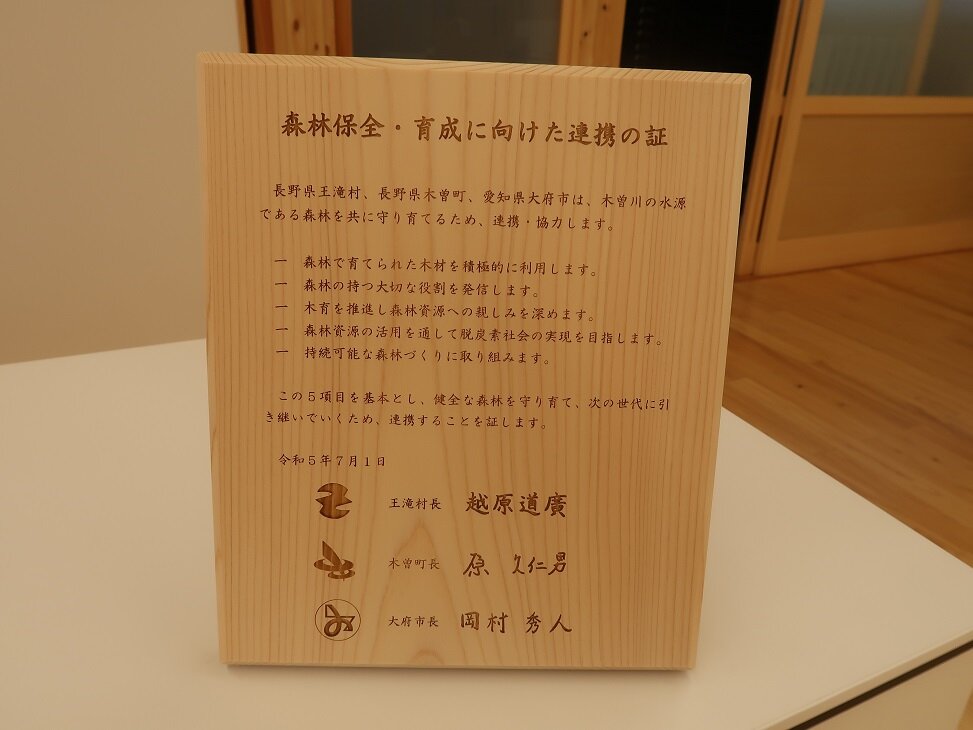 森林保全・育成に向けた連携の証
長野県王滝村、長野県木曽町、愛知県大府市は、木曽川の水源
である森林を共に守り育てるため、連携・協力します。
一 森林で育てられた木材を積極的に利用します。
一 森林の持つ大切な役割を発信します。
一 木育を推進し森林資源への親しみを深めます。
一 森林資源の活用を通して脱炭素社会の実現を目指します。
一 持続可能な森林づくりに取り組みます。
この５項目を基本とし、健全な森林を守り育て、次の世代に引
き継いでいくため、連携することを証します。
令和５年７月１日
王滝村長 越原道廣
木曽町長 原 久仁男
大府市長 岡村 秀人